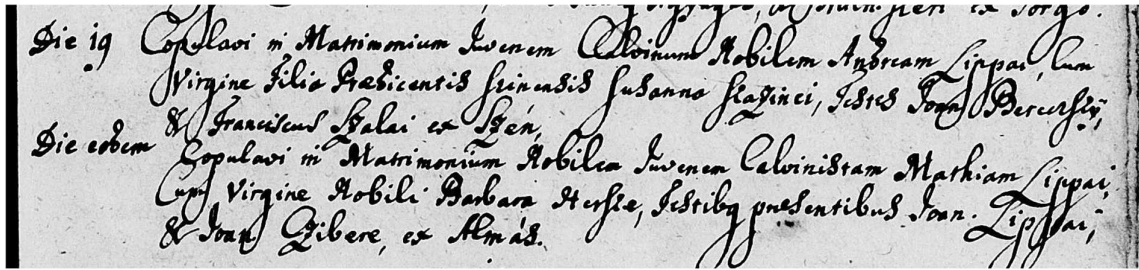 Die 19 Copulavi in Matrimonium Juvenem Calvinum Nobilem Andream Lippai, Cum
Virgine Filia Prædicantis Susanna Testes Joan
& Franciscus Szalai ex Szén,
Die eodem Copulavi in Matrimonium Nobilem Juvenem Calvinistam Mathiam Lippai,
Cum Virgine Nobili Barbara Testibq præsentibus Joan. Lippai,
& Joan Czibere, ex Almás.